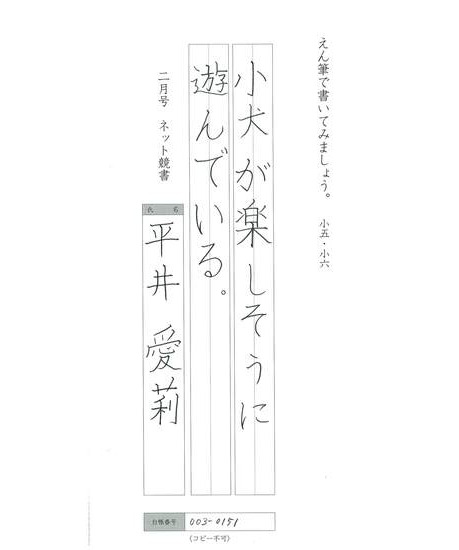 えん筆で書いてみましょう。 小五・小六
小犬が楽しそうに
遊んでいる。
二月号 ネット競書
氏名
平井 愛莉
台帳番号 003-0151
(コピー不可)